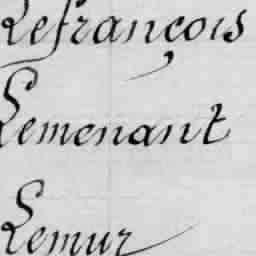 Lefrançois
Lemenant
Lemur